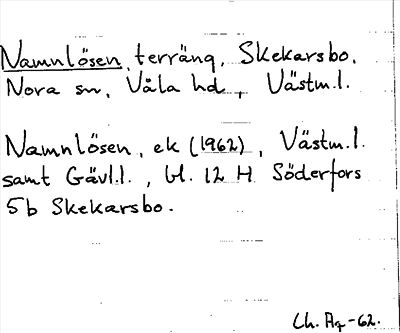 Namnlösen, terräng, Skekarsbo,
Nora sn, Våla hd, Västm.l.
Namnlösen, ek (1962), Västm.l.
samt Gävl.l., bl. 12 H Söderfors
5b Skekarsbo.
Ch. Ag -62.